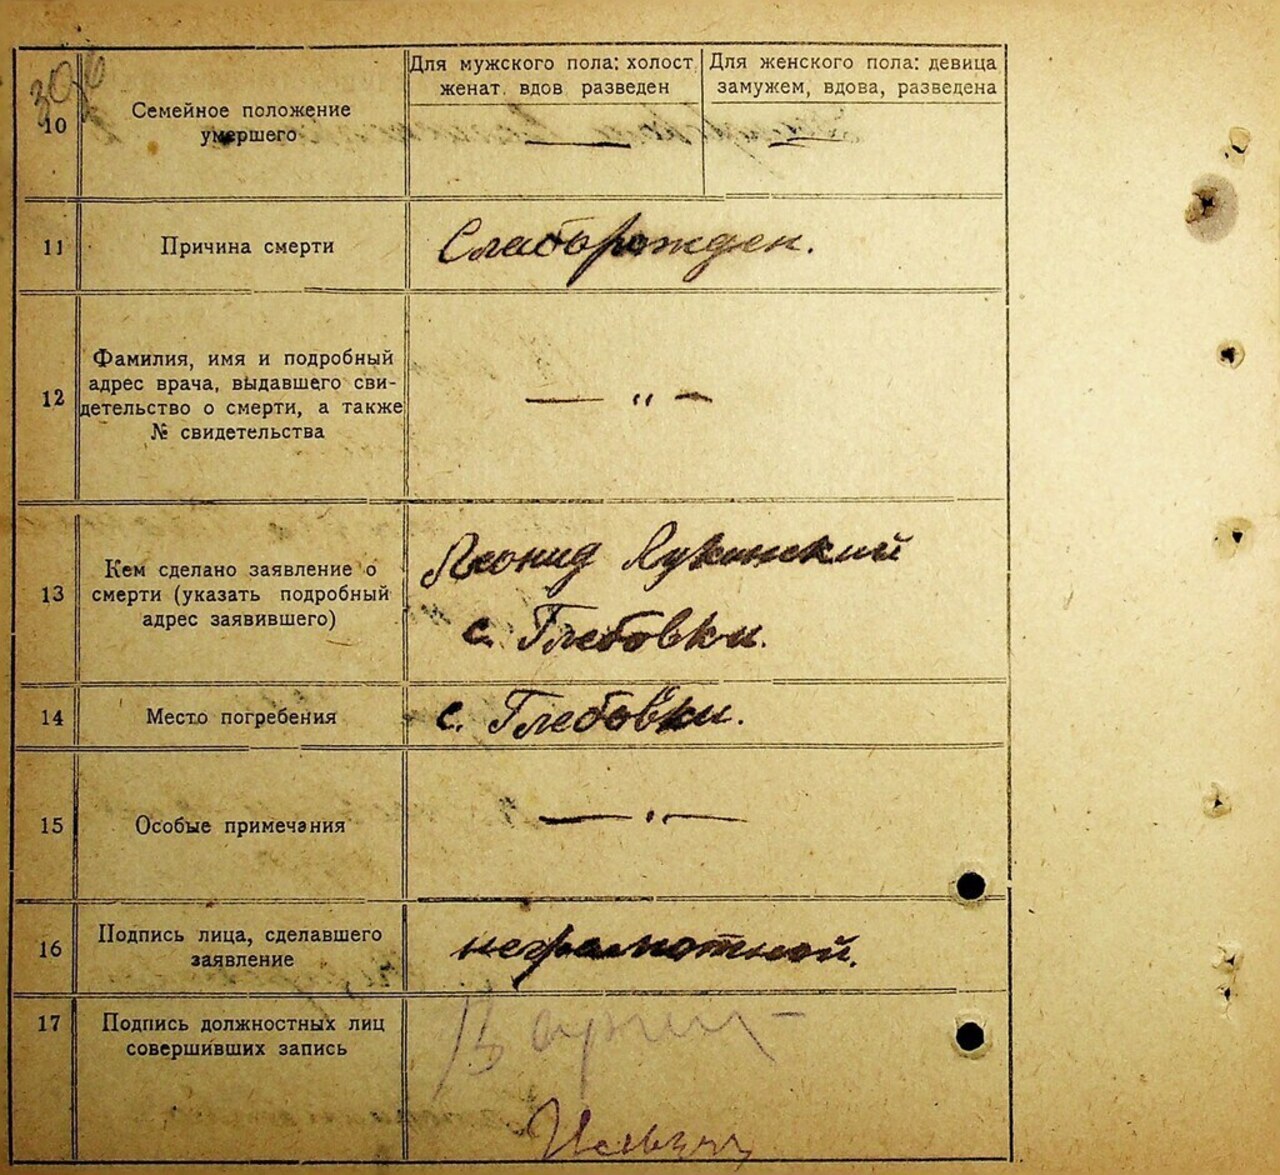 10
Семейное положение
умершего
Для мужского пола: холост,
женат, вдов разведен
Для женского пола: девица
замужем, вдова, разведена
—
—
11
Причина смерти
Слаборожден.
12
Фамилия, имя и подробный
адрес врача, выдавшего сви-
детельство о смерти, а также
№ свидетельства
— „ —
13
Кем сделано заявление о
смерти (указать подробный
адрес заявившего)
Леонид Лукинский
с. Глебовки.
14
Место погребения
с. Глебовки.
15
Особые примечания
— „ —
16
Подпись лица, сделавшего
заявление
неграмотной.
17
Подпись должностных лиц
совершивших запись